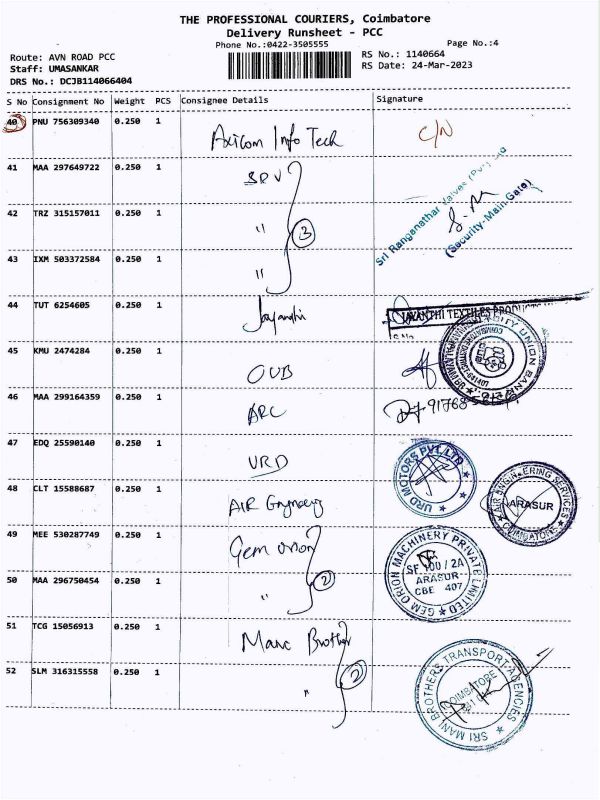 THE PROFESSIONAL COURIERS, Coimbatore
Delivery Runsheet - PCC
Phone No.:0422-3505555
Page No.:4
Route: AVN ROAD PCC
RS No.: 1140664
Staff: UMASANKAR
RS Date: 24-Mar-2023
DRS No.: DCJB114066404
S No Consignment No Weight PCS Consignee Details Signature
40 PNU 756309340 0.250 1 Axicom Info Tech C/N
41 MAA 297649722 0.250 1 SRV
Sri Ranganathar Valves (Pvt)
(Security-Main Gate)
42 TRZ 315157011 0.250 1 " 3
43 IXM 503372584 0.250 1 "
44 TUT 6254605 0.250 1 Jayanthi
JAYANTHI TEXTILES PRODUCTS
45 KMU 2474284 0.250 1 OUB
CITY UNION BANK
641407
46 MAA 299164359 0.250 1 ARC
47 EDQ 25590140 0.250 1 URD
URD MOTORS PVT LTD
48 CLT 15588687 0.250 1 AIR
AIR ENGINEERING SERVICES
ARASUR
COIMBATORE
49 MEE 530287749 0.250 1 Gem orion
GEM ORION MACHINERY PRIVATE LIMITED
SF 100 / 2A
ARASUR
CBE 407
50 MAA 296750454 0.250 1 " 2
51 TCG 15056913 0.250 1 Manc Brother
52 SLM 316315558 0.250 1 " 2
SRI MANI BROTHERS TRANSPORT AGENCIES
COIMBATORE